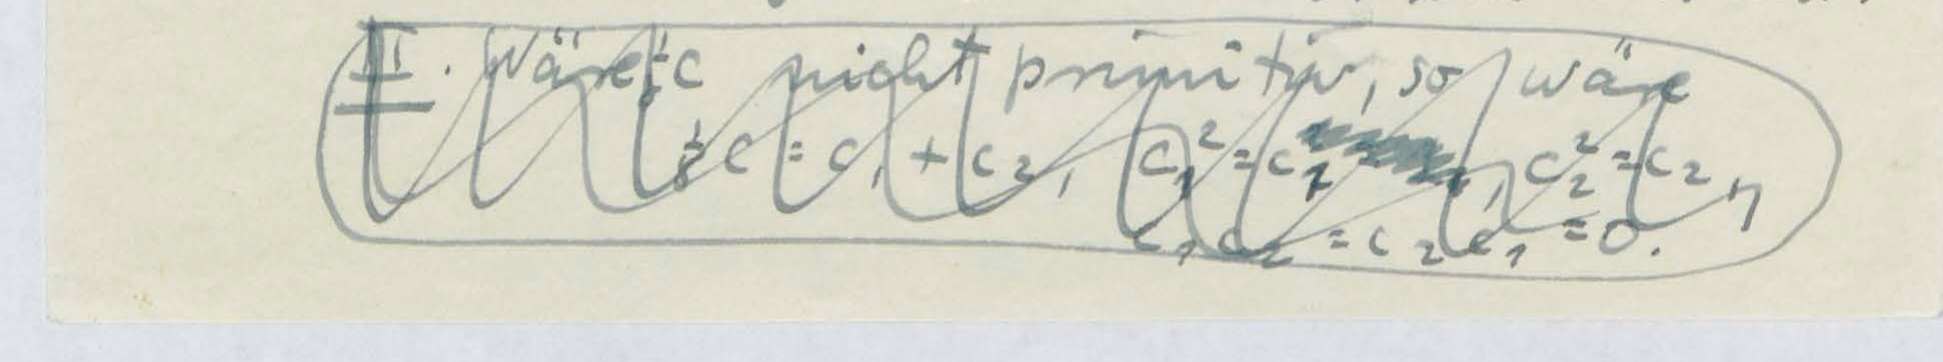 III. Wäre ½c nicht primitiv, so wäre
½c = c₁ + c₂, c₁² = c₁, c₂² = c₂,
c₁c₂ = c₂c₁ = 0.